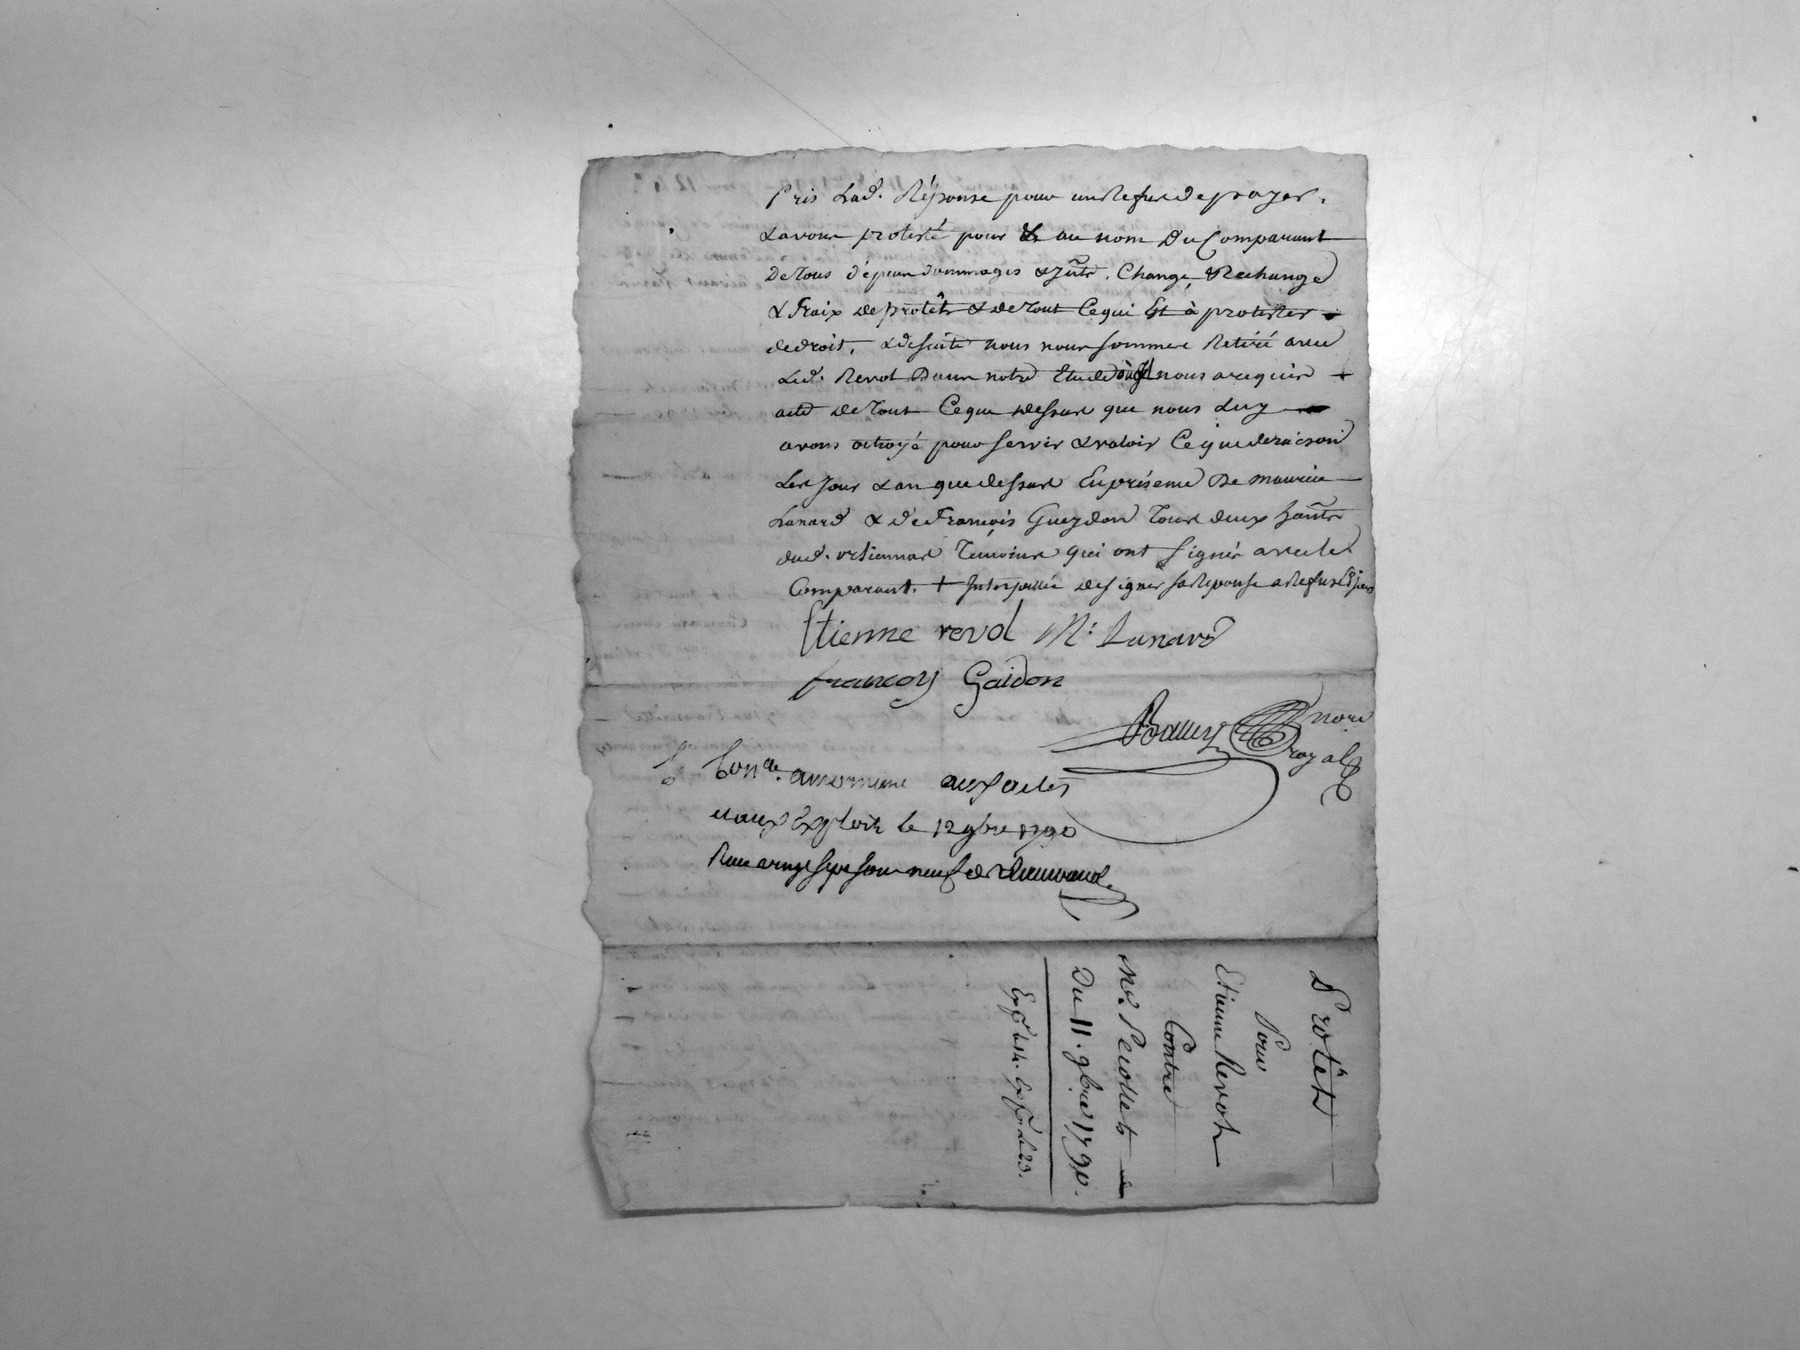 Pris Lad. Réponse pour un Refus de payer.
& avons protesté pour & au nom Du Comparant
De Tous dépens dommages & Jnts. Change, & Rechange
& Fraix de protêts & de Tout Ce qui Est à protester
de droit, & de suite nous nous sommes Retiré avec
Led. Revol Dans notre Etude où Jl nous a requis +
acte de Tout Ce que dessus que nous Luy
avons octroyé pour servir & valoir Ce que de raison
Les Jour & an que dessus En présence De maurice
Lanard & de François Gueydon Tous deux hants
dud. Témoins qui ont signés avec le
Comparant. + Interpellé de signer sa Réponse a Refusé
Etienne revol M: Lanard
francois Gaidon
nore
royal
aux actes
et aux Exploits le 12 9bre 1790
Protêt
Pour
Etienne Revol
Contre
Du 11. 9bre 1790.